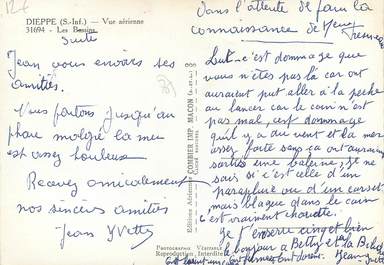 DIEPPE (S.-Inf.) — Vue aérienne
31694 - Les Bassins
Suite
Jean vous envois ses
amitiés.
Nous partons jusqu'au
phare malgré la mer
est assez houleuse
Recevez amicalement
nos sincères amitiés
Jean Yvette
Editions Aériennes COMBIER IMP. MACON
PHOTOGRAPHIE VÉRITABLE
Reproduction Interdite
dans l'attente de faire la
connaissance de
c'est dommage que
vous n'êtes pas là car ont
auraient put aller à la pêche
au lancer car le coin n'est
pas mal, c'est dommage
qu'il y a du vent et la mer
assez forte sens ça ont auraient
sorties une baleine, je ne
sais si c'est celle d'un
parapluie ou d'un corset
mais blague dans le coin
c'est vraiment chouette.
je t'en serre cinq et bien
le bonjour à Betty et la